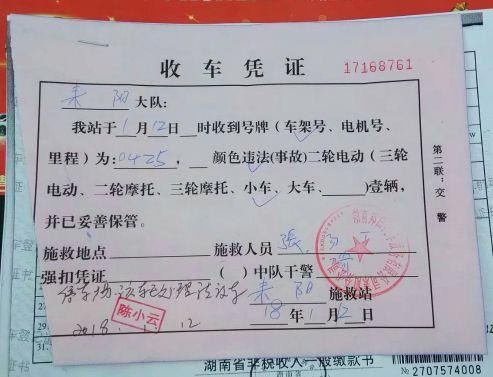 收车凭证 17168761
耒阳大队:
我站于1月12日 时收到号牌(车架号、电机号、
里程)为:0425, 颜色违法(事故)二轮电动(三轮
电动、二轮摩托、三轮摩托、小车、大车、 )壹辆,
并已妥善保管。
施救地点 施救人员 張
强扣凭证 ( )中队干警
耒阳 施救站
18年1月12日
2018. 12
陈小云
第二联:交警
湖南省非税收入一般缴款书
№2707574008